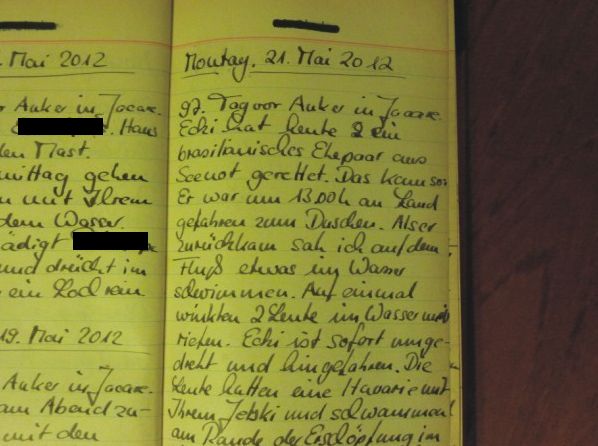 . Mai 2012
r Anker in Jacare.
. Hans
den Mast.
mittag gehen
n mit Ihrem
dem Wasser.
ädigt
und drückt im
ein Loch rein.
19. Mai 2012
Anker in Jacare.
am Abend zu-
mit den
Montag, 21. Mai 2012
97. Tag vor Anker in Jacare.
Ecki hat heute 2 ein
brasilianisches Ehepaar aus
Seenot gerettet. Das kam so:
Er war um 13.00h an Land
gefahren zum Duschen. Als er
zurückkam sah ich auf dem
Fluß etwas im Wasser
schwimmen. Auf einmal
winkten 2 Leute im Wasser und
riefen. Ecki ist sofort umge-
dreht und hingefahren. Die
Leute hatten eine Havarie mit
Ihrem Jetski und schwammen
am Rande der Erschöpfung im